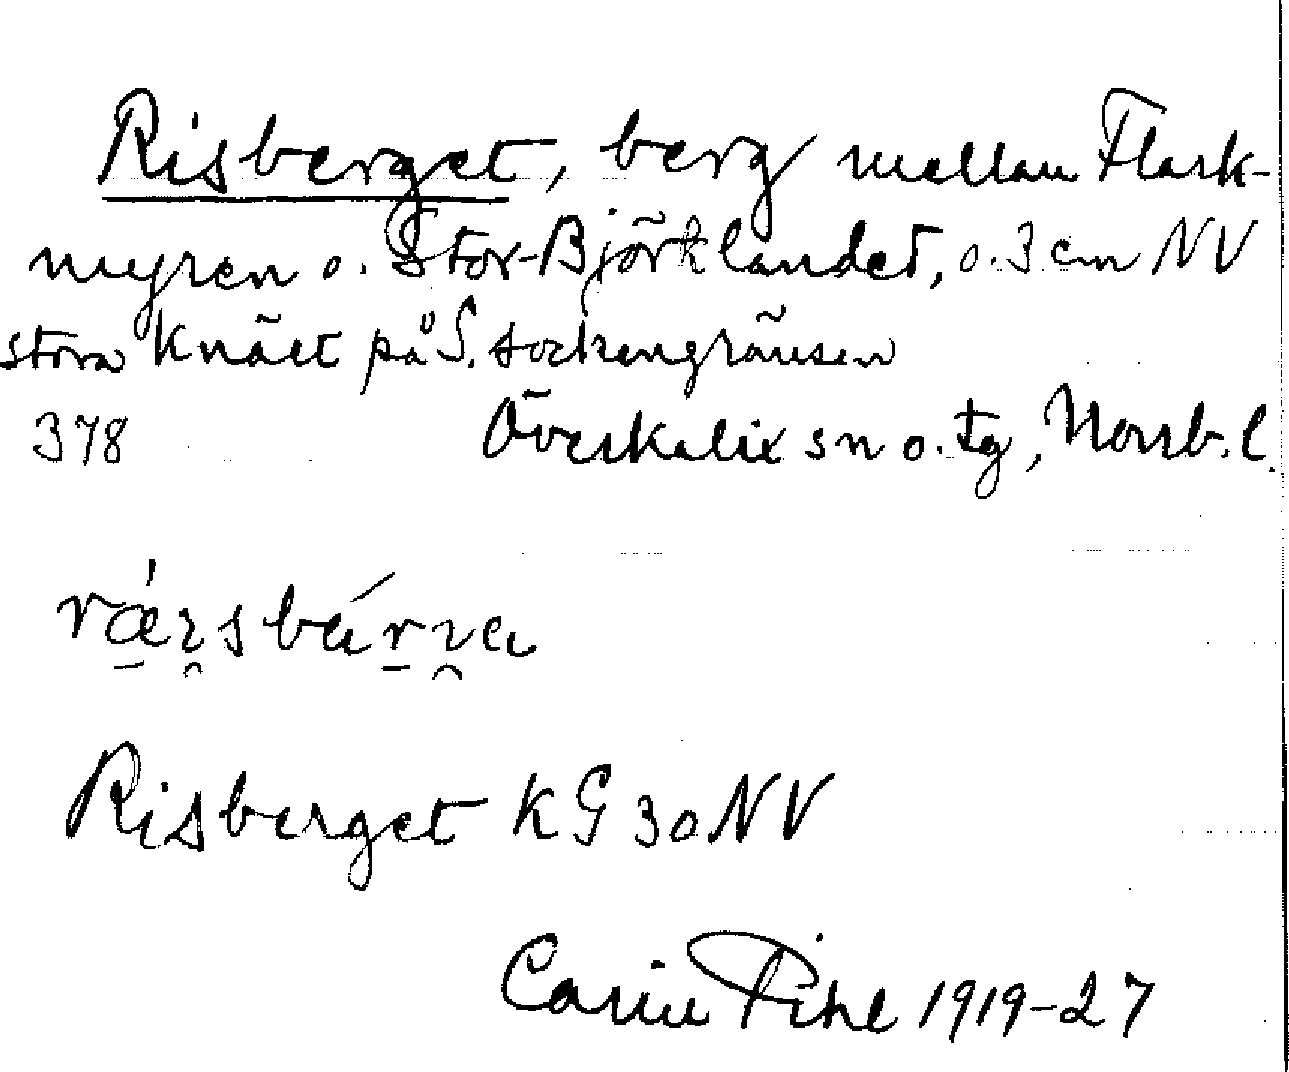 Risberget, berg mellan Flark-
myren o. Stor-Björklandet, o. 3 cm NV
stora Knäet på S. sockengränsen
378 Överkalix sn o. tg, Norrb. l.
Risberget KG 30 NV
Carin Pihl 1919-27